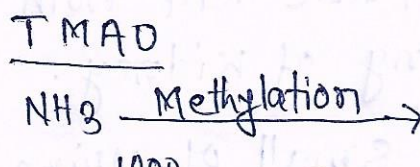 TMAO
NH3 Methylation →